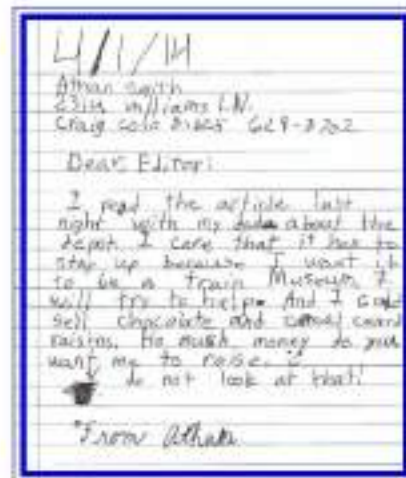 4/1/14
Athan Smith
Williams LN.
Craig Colo
Dear Editor:
I read the article last
night with my dad about the
depot. I care that it has to
stay up because I want it
to be a train Museum. I
will try to help. And I
sell chocolate and
raisins. Ho much money do you
want me to raise.
do not look at that!
From Athan